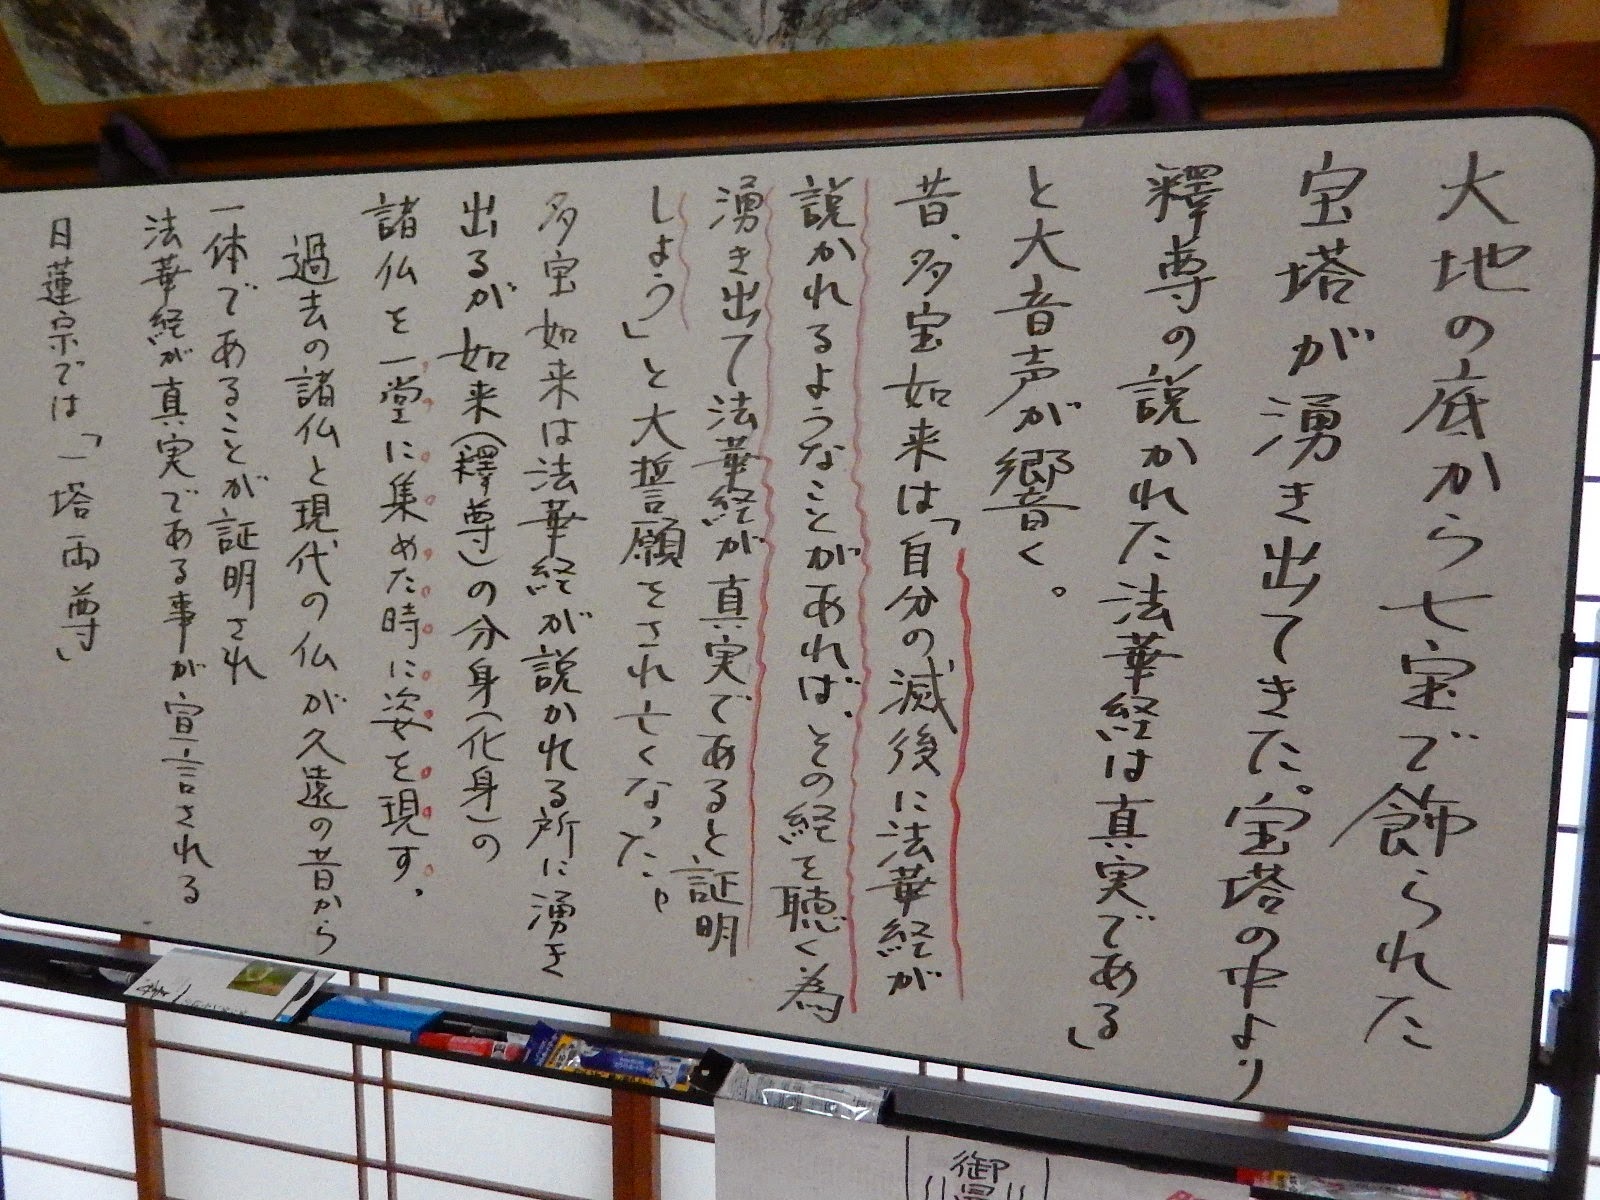 大地の底から七宝で飾られた
宝塔が湧き出てきた。宝塔の中より
釋尊の説かれた法華経は真実である」
と大音声が響く。
昔、多宝如来は「自分の滅後に法華経が
説かれるようなことがあれば、その経を聴く為
湧き出て法華経が真実であると証明
しよう」と大誓願をされ亡くなった。
多宝如来は法華経が説かれる所に湧き
出るが如来(釋尊)の分身(化身)の
諸仏を一堂に集めた時に姿を現す。
過去の諸仏と現代の仏が久遠の昔から
一体であることが証明され
法華経が真実である事が宣言される
日蓮宗では「一塔両尊」
御